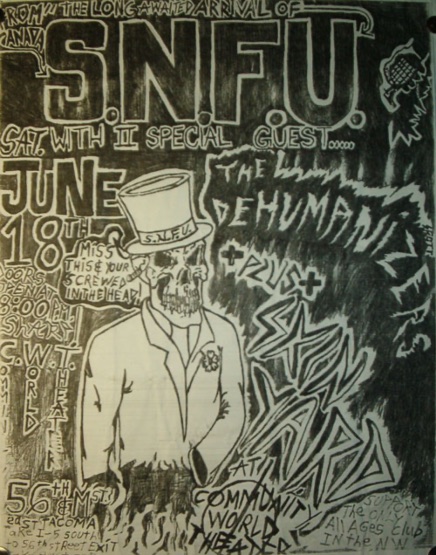 "FROM" THE LONG AWAITED ARRIVAL OF
CANADA
S.N.F.U.
SAT. WITH II SPECIAL GUEST.....
JUNE
18TH
THE
DEHUMANIZERS
+PLUS+
SKIN
YARD
S.N.F.U.
MISS
THIS & YOUR
SCREWED
IN THE HEAD!
DOORS
OPEN AT
8:00 PM
SHARP!
C.W.T.
COMMUNITY
WORLD
THEATER
AT
COMMUNITY
WORLD
THEATER
56TH & M ST!
EAST TACOMA
TAKE I-5 SOUTH
TO 56TH STREET EXIT
The only
All Ages Club
In the N.W.